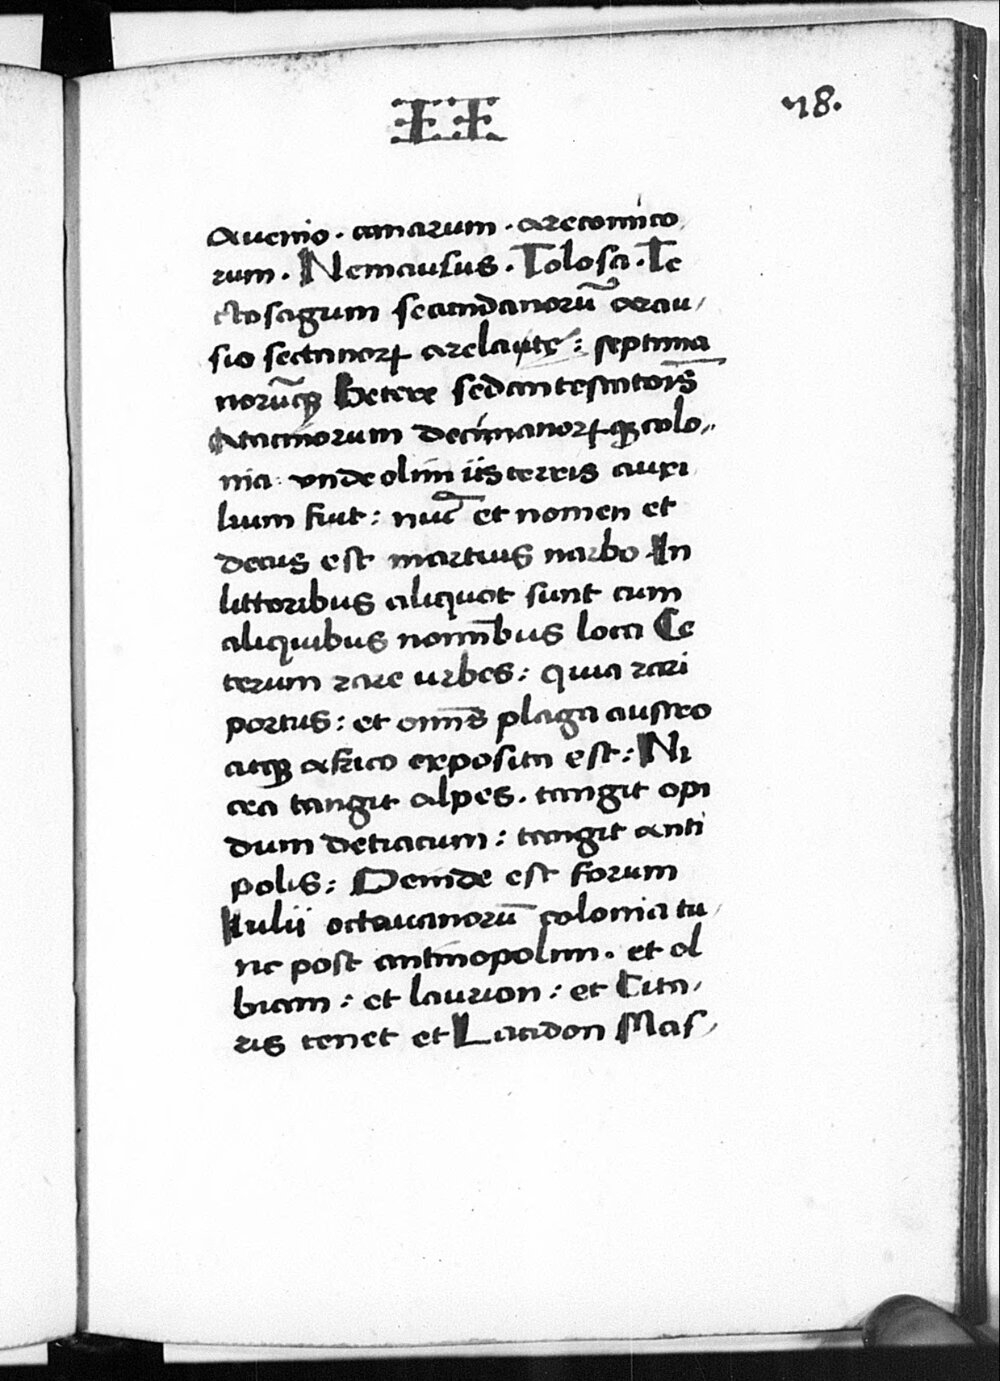 II
78.
Auenio . cauarum . arecomico
rum . Nemausus . Tolosa . Te
ctosagum secundanorū arau/
sio sectanorꝝ arelaute : septima
norūqꝫ
Atacinorum decimanorꝝqꝫ colo//
nia : vnde olim iis terris auxi
lium fuit : nūc et nomen et
decus est martius narbo In
littoribus aliquot sunt cum
aliquibus nomībus loca Ce
terum rare urbes : quia rari
portus : et omīs plaga austro
atqꝫ africo exposita est : Ni
cea tangit alpes . tangit opi
dum detiatum : tangit anti
polis : Deinde est forum
Iulii octauanorū colonia tu/
nc post antinopolim . et ol
biam : et laurion : et Cita/
ris tenet et Lacidon Mas/